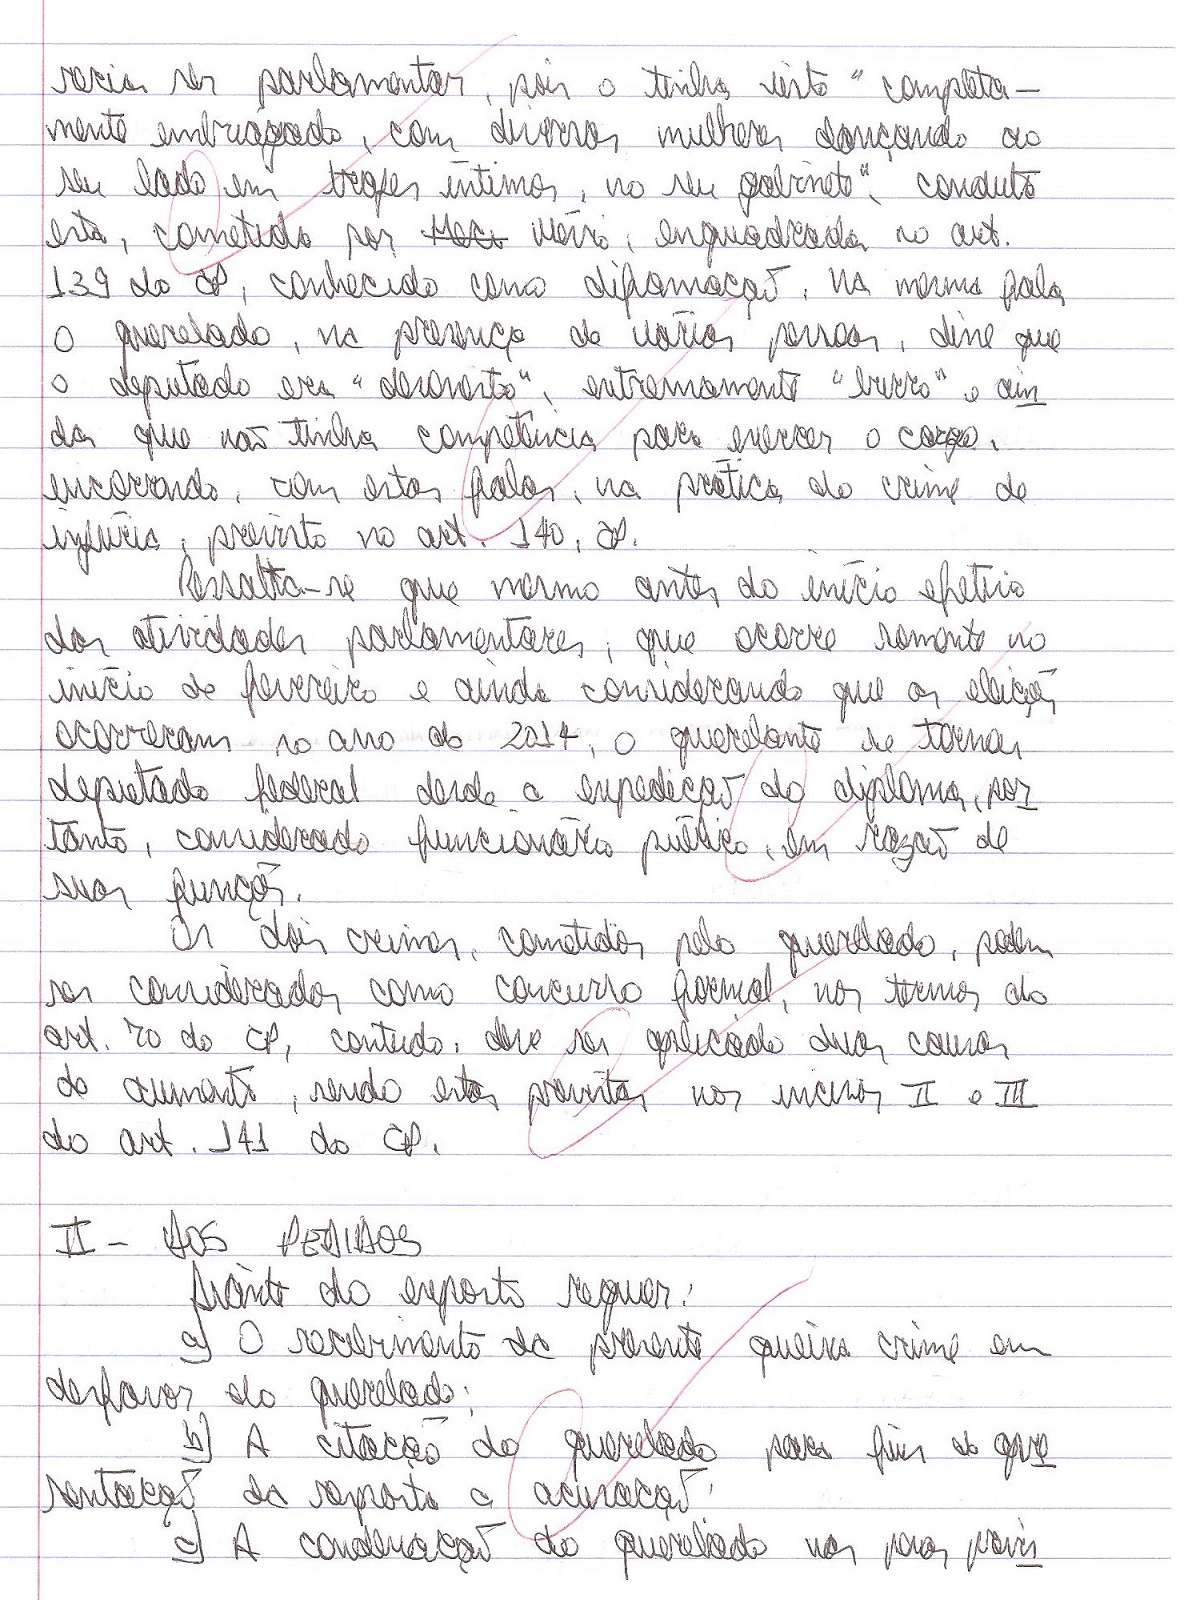 recia ser parlamentar, pois o tinha visto "completa-
mente embriagado, com diversas mulheres dançando ao
seu lado em trajes íntimos, no seu gabinete", conduta
esta, cometida por Mário, enquadrada no art.
139 do CP, conhecido como difamação. Na mesma fala
o querelado, na presença de várias pessoas, disse que
o deputado era "desonesto", extremamente "burro" e ain
da que não tinha competência para exercer o cargo,
incorrendo, com estas falas, na prática do crime de
injúria, previsto no art. 140, CP.
Ressalta-se que mesmo antes do início efetivo
das atividades parlamentares, que ocorre somente no
início de fevereiro e ainda considerando que as eleições
ocorreram no ano de 2014, o querelante se tornou
deputado federal desde a expedição do diploma, por
tanto, considerado funcionário público, em razão de
suas funções.
Os dois crimes, cometidos pelo querelado, podem
ser considerados como concurso formal, nos termos do
art. 70 do CP, contudo, deve ser aplicado duas causas
de aumento, sendo estas previstas nos incisos II e III
do art. 141 do CP.
II - DOS PEDIDOS
Diante do exposto requer:
a) O recebimento da presente queixa crime em
desfavor do querelado;
b) A citação do querelado para fins de apre
sentação da resposta a acusação;
c) A condenação do querelado nas penas previs